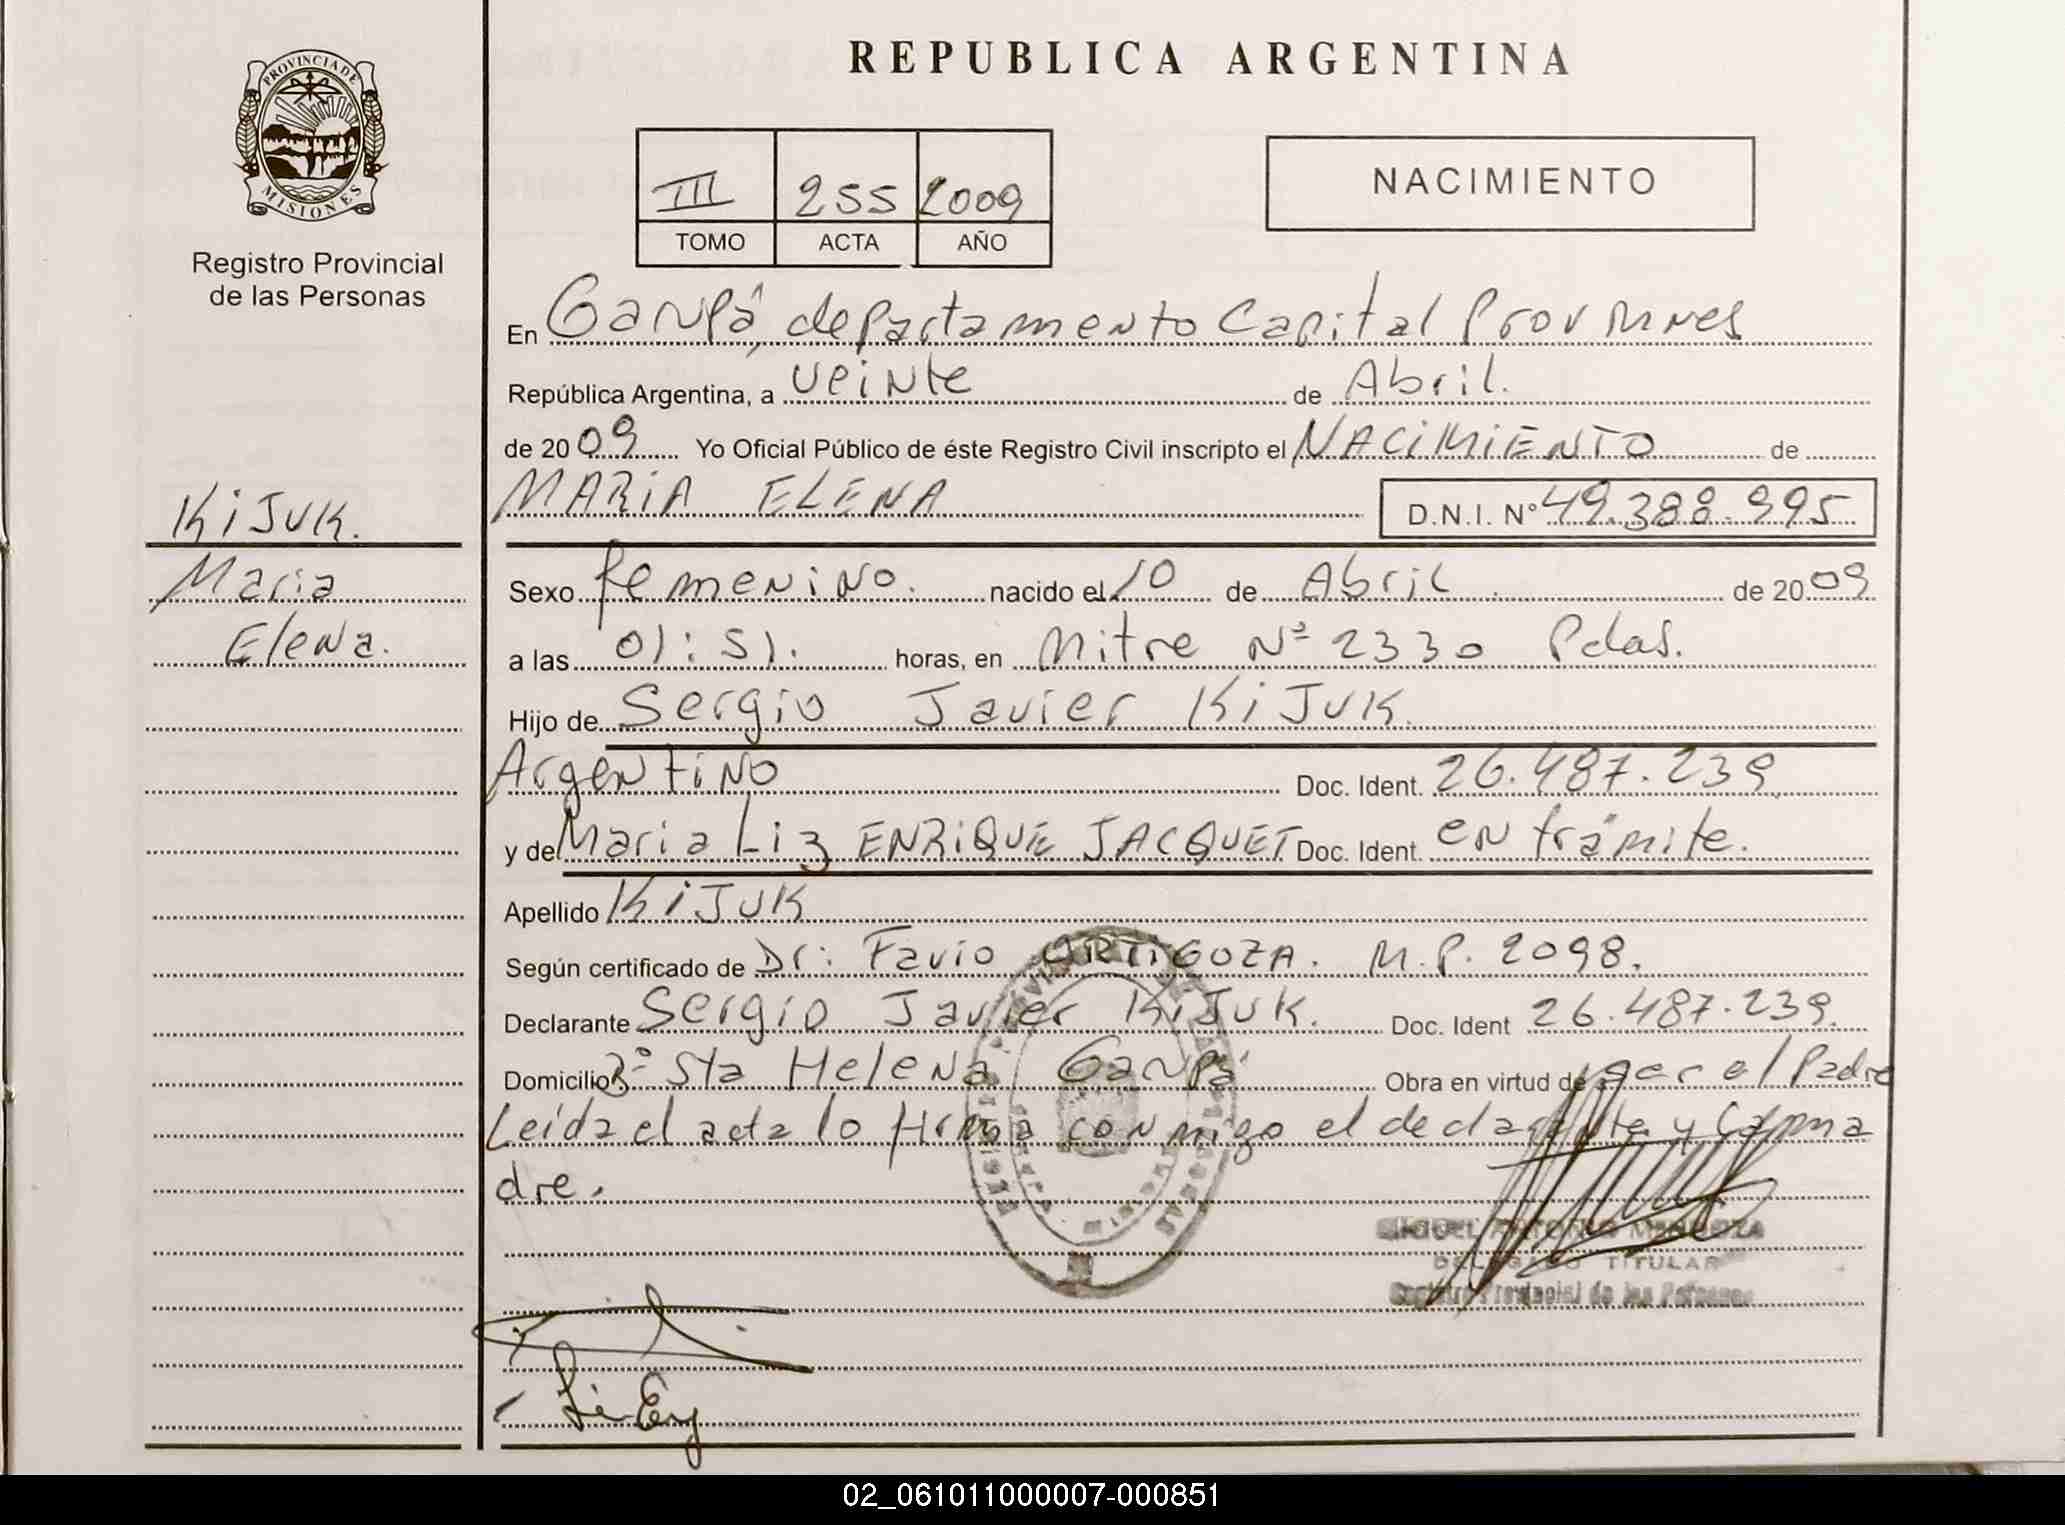 PROVINCIA DE
MISIONES
Registro Provincial
de las Personas
KiJUK.
Maria
Elena.
REPUBLICA ARGENTINA
III 255 2009
TOMO ACTA AÑO
NACIMIENTO
En Garupá, departamento Capital Prov Mnes
República Argentina, a veinte de Abril.
de 2009 Yo Oficial Público de éste Registro Civil inscripto el NACiMiENTO de
MARiA ELENA D.N.I. N° 49.388.995
Sexo femenino. nacido el 10 de Abril de 2009
a las 01:51. horas, en Mitre Nº 2330 Pdas.
Hijo de Sergio Javier KiJUK.
Argentino Doc. Ident. 26.487.239
y de Maria Liz ENRiQUE JACQUET Doc. Ident. en trámite.
Apellido KiJUK
Según certificado de Dr: Favio ORTiGOZA. M.P. 2098.
Declarante Sergio Javier KiJUK. Doc. Ident 26.487.239.
Domicilio Bº Sta Helena Garupá Obra en virtud de ser el Padre
Leída el acta lo firma conmigo el declarante y la ma
dre.
MIGUEL ANTONIO MENDOZA
DELEGADO TITULAR
Registro Provincial de las Personas
02_061011000007-000851